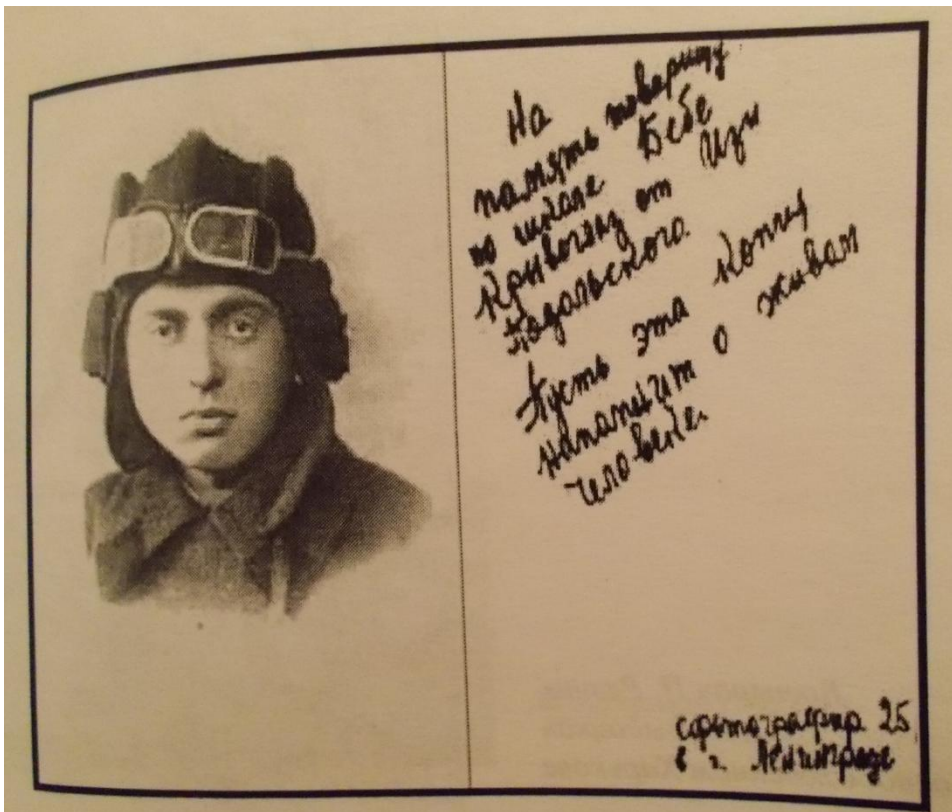 На
память товарищу
по школе Бебе
Кривогуз от Изи
Подольского.
Пусть эта копия
напомнит о живом
человеке.
сфотографир. 25
в г. Ленинграде